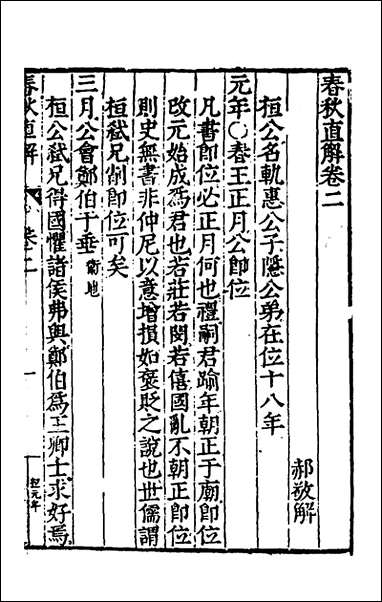 春秋直解卷二
郝敬解
桓公名軌惠公子隱公弟在位十八年
元年○春王正月公卽位
凡書卽位必正月何也禮嗣君踰年朝正于廟卽位
改元始成爲君也若莊若閔若僖國亂不朝正卽位
則史無書非仲尼以意增損如褒貶之說也世儒謂
桓弑兄削卽位可矣
三月公會鄭伯于垂衛地
桓公弑兄得國懼諸侯弗與鄭伯爲王卿士求好焉
春秋直解
卷二
一
桓元年